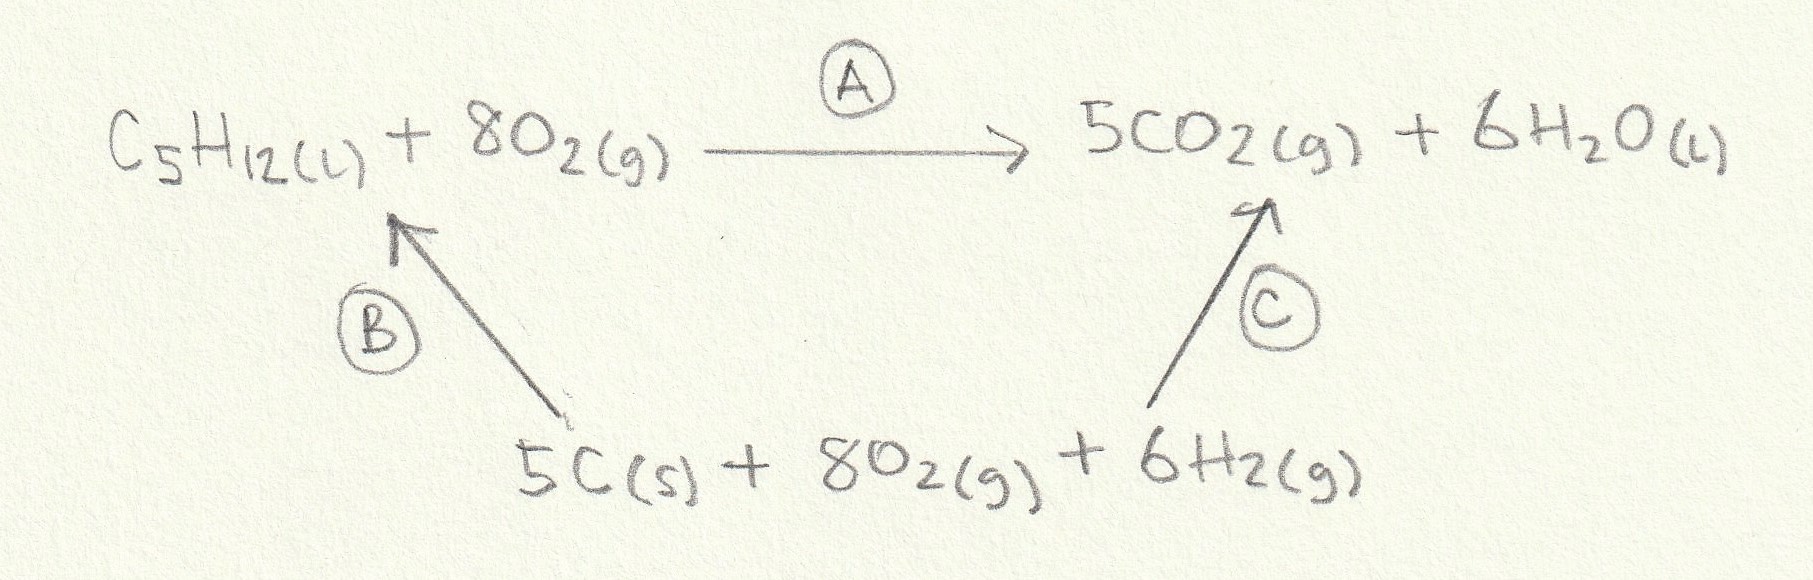 A
C5H12(l) + 8O2(g) → 5CO2(g) + 6H2O(l)
B
C
5C(s) + 8O2(g) + 6H2(g)